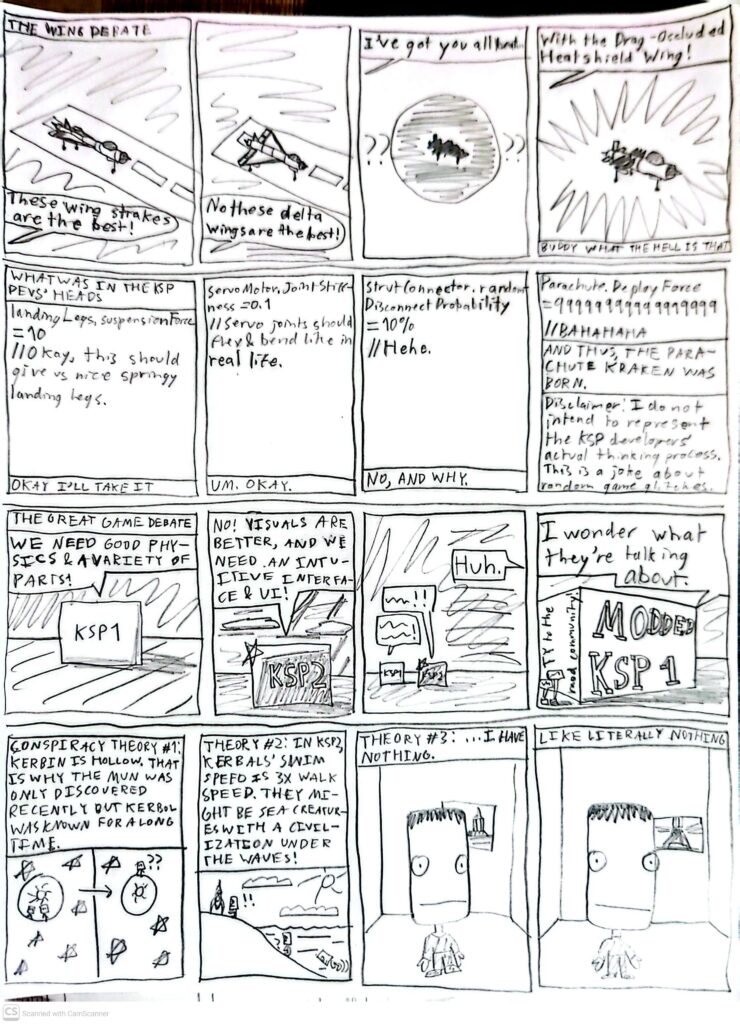 THE WING DEBATE
These wing strakes
are the best!
No these delta
wings are the best!
I've got you all
??
??
With the Drag-Occluded
Heatshield Wing!
BUDDY WHAT THE HELL IS THAT
WHAT WAS IN THE KSP
DEVS' HEADS
landing Legs, suspension Force
=10
//Okay, this should
give us nice springy
landing legs.
OKAY I'LL TAKE IT
servo Motor. Joint Stiff-
ness = 0.1
//Servo joints should
flex & bend like in
real life.
UM. OKAY.
Strut Connector. random
Disconnect Probability
=10%
//Hehe.
NO, AND WHY.
Parachute. Deploy Force
=99999999999999999
//BAHAHAHA
AND THUS, THE PARA-
CHUTE KRAKEN WAS
BORN.
Disclaimer: I do not
intend to represent
the KSP developers'
actual thinking process.
This is a joke about
random game glitches.
THE GREAT GAME DEBATE
WE NEED GOOD PHY-
SICS & A VARIETY OF
PARTS!
KSP1
NO! VISUALS ARE
BETTER, AND WE
NEED AN INTU-
ITIVE INTERFA-
CE & UI!
KSP2
Huh.
!!
!
KSP1
KSP2
I wonder what
they're talking
about.
TY to the
mod community!
MODDED
KSP 1
CONSPIRACY THEORY #1:
KERBIN IS HOLLOW, THAT
IS WHY THE MUN WAS
ONLY DISCOVERED
RECENTLY BUT KERBOL
WAS KNOWN FOR A LONG
TIME.
??
THEORY #2: IN KSP,
KERBALS' SWIM
SPEED IS 3X WALK
SPEED. THEY MI-
GHT BE SEA CREATUR-
ES WITH A CIVIL-
IZATION UNDER
THE WAVES!
!!
THEORY #3: ...I HAVE
NOTHING.
LIKE LITERALLY NOTHING
CS Scanned with CamScanner